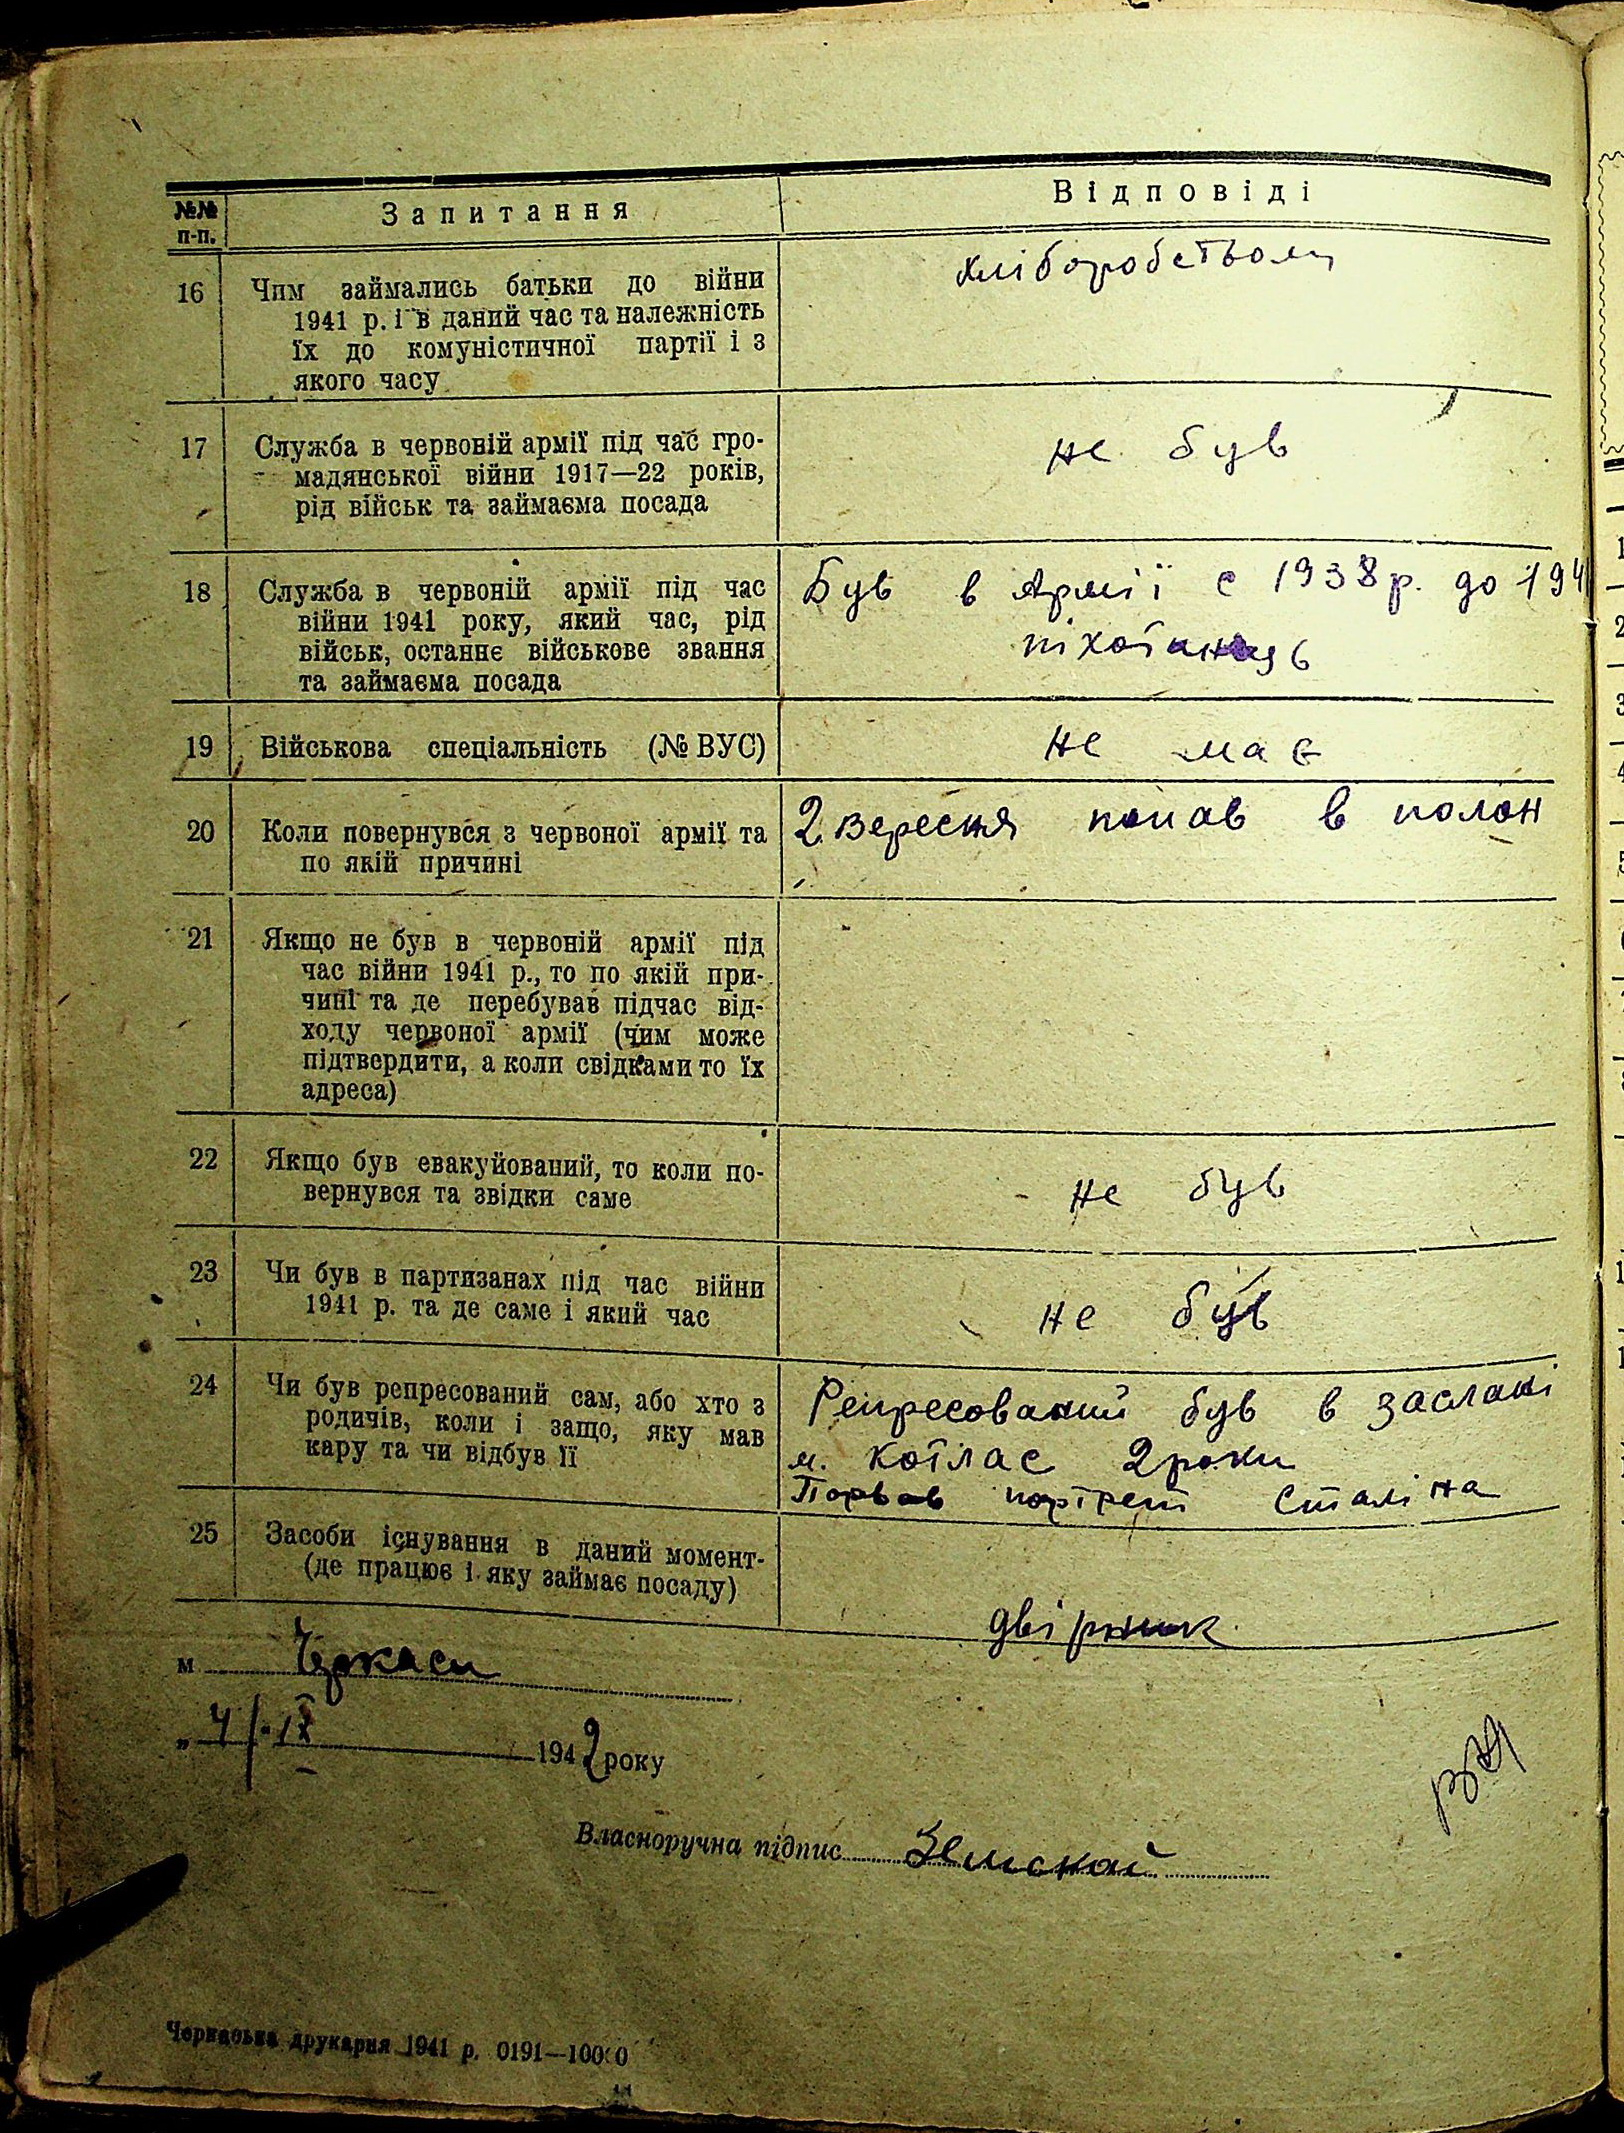 №№ п-п.
Запитання
Відповіді
16
Чим займались батьки до війни
1941 р. і в даний час та належність
їх до комуністичної партії і з
якого часу
хліборобством
17
Служба в червоній армії під час гро-
мадянської війни 1917—22 років,
рід військ та займаєма посада
не був
18
Служба в червоній армії під час
війни 1941 року, який час, рід
військ, останнє військове звання
та займаєма посада
Був в Армії с 1938 р. до 194
19
Військова спеціальність (№ ВУС)
не має
20
Коли повернувся з червоної армії та
по якій причині
2 Вересня попав в полон
21
Якщо не був в червоній армії під
час війни 1941 р., то по якій при-
чині та де перебував підчас від-
ходу червоної армії (чим може
підтвердити, а коли свідками то їх
адреса)
22
Якщо був евакуйований, то коли по-
вернувся та звідки саме
не був
23
Чи був в партизанах під час війни
1941 р. та де саме і який час
не був
24
Чи був репресований сам, або хто з
родичів, коли і защо, яку мав
кару та чи відбув її
Репресований був в заслані
м. Котлас 2 роки
Порвав портрет Сталіна
25
Засоби існування в даний момент-
(де працює і яку займає посаду)
двірник
м Черкаси
„ 4/ IX 1942 року
Власноручна підпис Земской
Черкаська друкарня 1941 р. 0191—10000